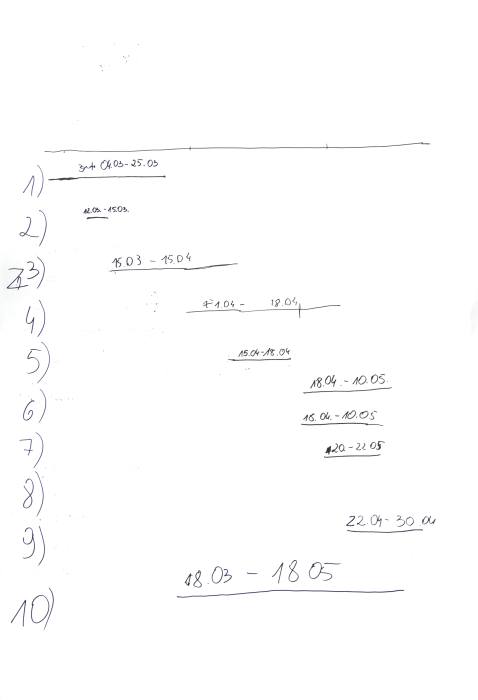 04.03-25.03
1)
12.03.-15.03.
2)
15.03 - 15.04
3)
1.04 - 18.04
4)
15.04-18.04
5)
18.04.-10.05.
6)
18.04.-10.05
7)
20-22.05
8)
22.04-30.04
9)
18.03 - 18 05
10)